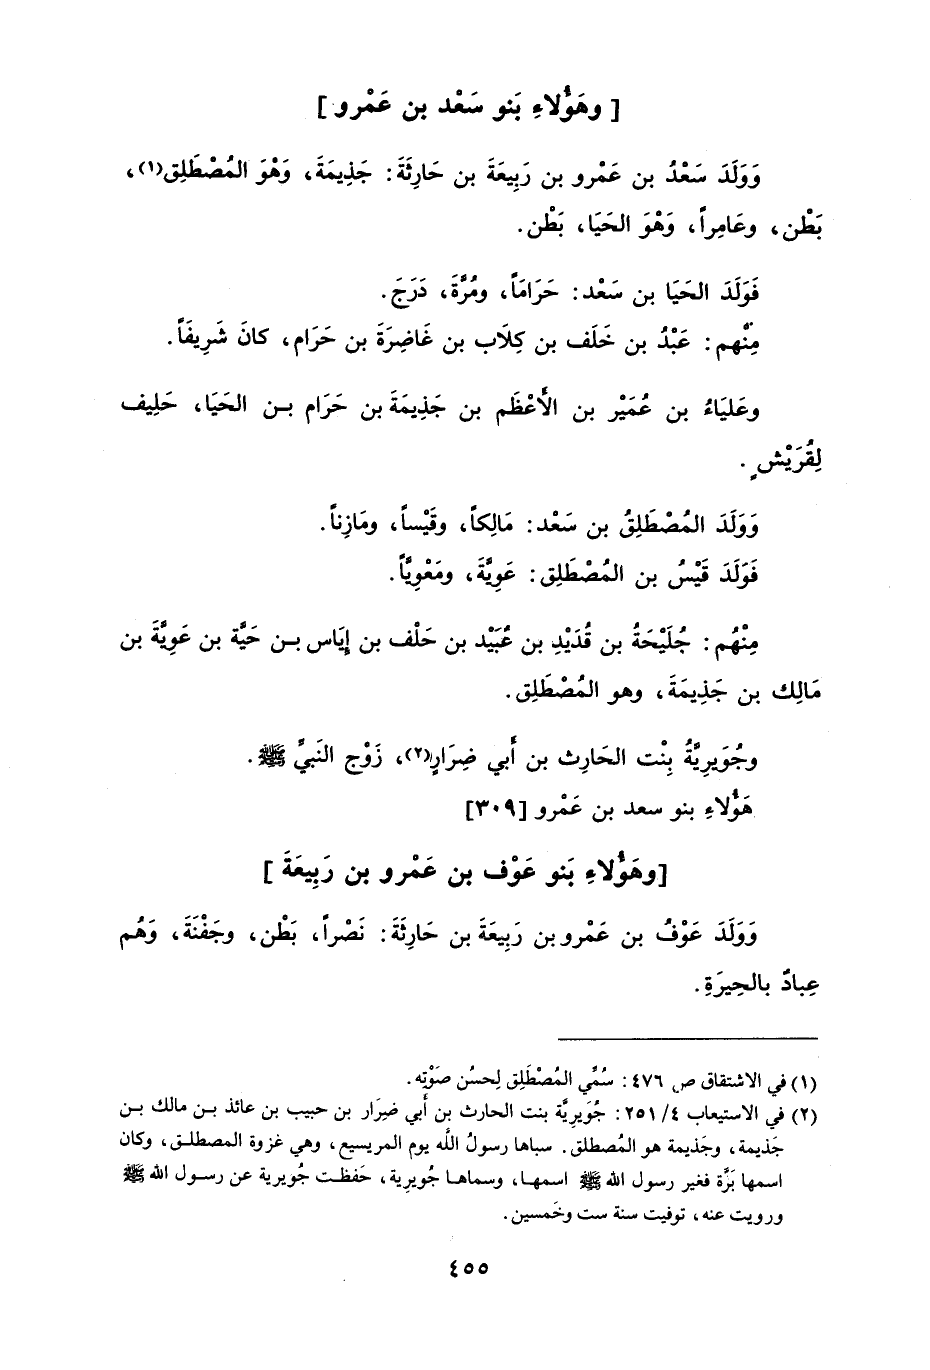 [ وهَؤُلاءِ بَنو سَعْد بن عَمْرو ]
وَوَلَدَ سَعْدُ بن عَمْرو بن رَبِيعَةَ بن حَارِثَةَ : جَذِيمَةَ ، وَهْوَ المُصْطَلِق(١) ،
بَطْن ، وعَامِراً ، وَهْوَ الحَيَا ، بَطْن .
فَوَلَدَ الحَيَا بن سَعْد : حَرَامَاً ، ومُرَّةَ ، دَرَجَ .
مِنْهم : عَبْدُ بن خَلَف بن كِلَاب بن غَاضِرَةَ بن حَرَام ، كانَ شَرِيفَاً .
وعَليَاءُ بن عُمَيْر بن الأَعْظَم بن جَذِيمَةَ بن حَرَام بـن الحَيَا ، حَلِيف
لِقُرَيْشٍ .
وَوَلَدَ المُصْطَلِقُ بن سَعْد : مَالِكاً ، وقَيْساً ، ومَازِناً .
فَوَلَدَ قَيْسُ بن المُصْطَلِق : عَوِيَّةَ ، ومَعْوِيَّاً .
مِنْهُم : جُلَيْحَةُ بن قُدَيْدِ بن عُبَيْد بن خَلْف بن إيَاس بـن حَيَّة بن عَوِيَّةَ بن
مَالِك بن جَذِيمَةَ ، وهو المُصْطَلِق .
وجُوَيرِيَّةُ بِنْت الحَارِث بن أَبي ضِرَارٍ(٢) ، زَوْج النَبيِّ ﷺ .
هَؤُلاءِ بنو سعد بن عَمْرو [٣٠٩]
[وهَؤُلاءِ بَنو عَوْف بن عَمْرو بن رَبِيعَةَ ]
وَوَلَدَ عَوْفُ بن عَمْرو بن رَبِيعَةَ بن حَارِثَةَ : نَصْراً ، بَطْن ، وجَفْنَةَ ، وَهُم
عِبادٌ بالحِيرَةِ .
(١) في الاشتقاق ص ٤٧٦ : سُمِّي المُصْطَلِق لِحسُن صَوْتِه .
(٢) في الاستيعاب ٤/ ٢٥١ : جُوَيرِيَّة بنت الحارث بن أَبي ضِرَار بن حبيب بن عائذ بـن مالك بـن
جَذيمة ، وجَذيمة هو المُصطلق . سباها رسولُ الله يوم المريسيع ، وهي غزوة المصطلـق ، وكان
اسمها بَرَّة فغير رسول الله ﷺ اسمهـا ، وسماهـا جُويرية ، حَفظـت جُويرية عن رسـول الله ﷺ
ورويت عنه ، توفيت سنة ست وخَمسين .
٤٥٥